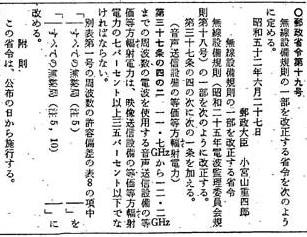 〇郵政省令第十九号
無線設備規則の一部を改正する省令を次のよう
に定める。
昭和五十二年六月二十七日
郵政大臣　小宮山重四郎
無線設備規則の一部を改正する省令
無線設備規則（昭和二十五年電波監理委員会規
則第十八号）の一部を次のように改正する。
第三十七条の四の次に次の一条を加える。
（音声送信設備の等価等方輻射電力）
第三十七条の四の二　一一・七GHzから一二・二GHz
までの周波数の電波を使用する音声送信設備の等
価等方輻射電力は、映像送信設備の等価等方輻射
電力の七パーセント以上三五パーセント以下でな
ければならない。
別表第一号の周波数の許容偏差の表8の項中
「一　すべての無線局（注5）　」を
「一　すべての無線局（注5，10）　」に
改める。
附　則
この省令は、公布の日から施行する。